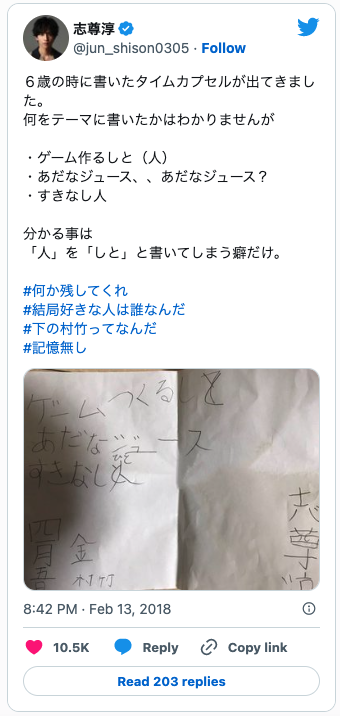 志尊淳
@jun_shison0305 · Follow
６歳の時に書いたタイムカプセルが出てきまし
た。
何をテーマに書いたかはわかりませんが
・ゲーム作るしと（人）
・あだなジュース、、あだなジュース？
・すきなし人
分かる事は
「人」を「しと」と書いてしまう癖だけ。
#何か残してくれ
#結局好きな人は誰なんだ
#下の村竹ってなんだ
#記憶無し
ゲームつくるしと
あだなジュース
すきなし
志尊
四月
金
村竹
8:42 PM · Feb 13, 2018
10.5K
Reply
Copy link
Read 203 replies